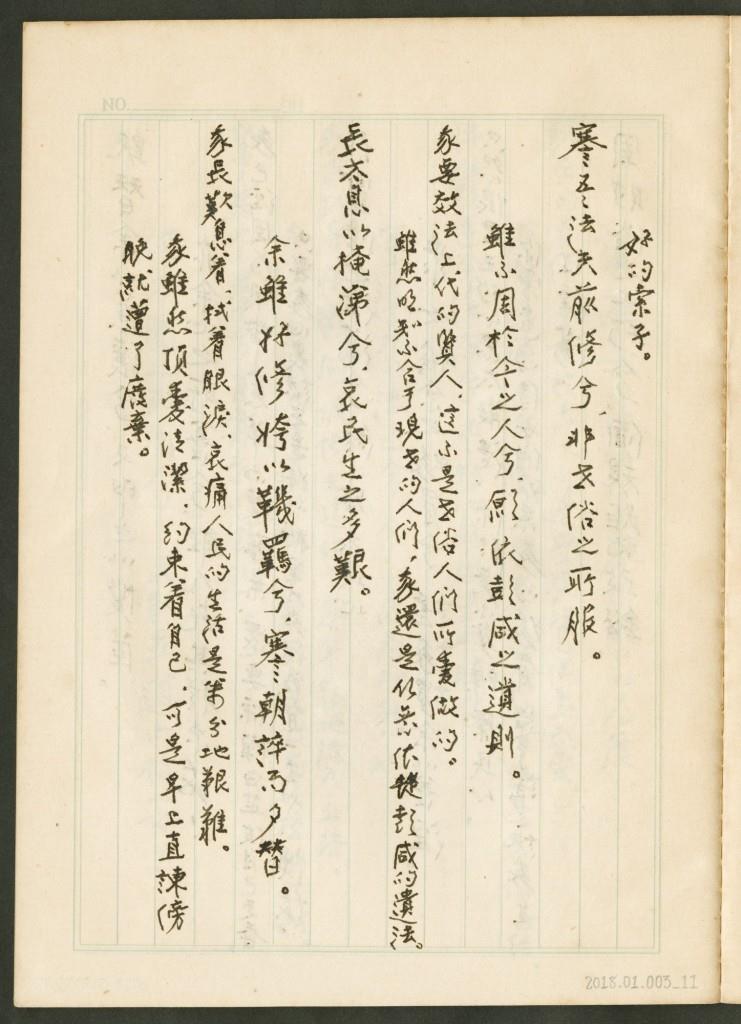 好的索子。
謇吾法夫前修兮、非世俗之所服。
雖不周於今之人兮、願依彭咸之遺則。
我要效法上代的賢人、這不是世俗人們所愛做的。
雖然明知不合于現世的人們、我還是依然依從彭咸的遺法。
長太息以掩涕兮、哀民生之多艱。
余雖好修姱以鞿羈兮、謇朝誶而夕替。
我長歎息着、拭着眼淚、哀痛人民的生活是萬分地艱難。
我雖然頂愛清潔、約束着自己、可是早上直諫傍
晚就遭了廢棄。
2018.01.003_11